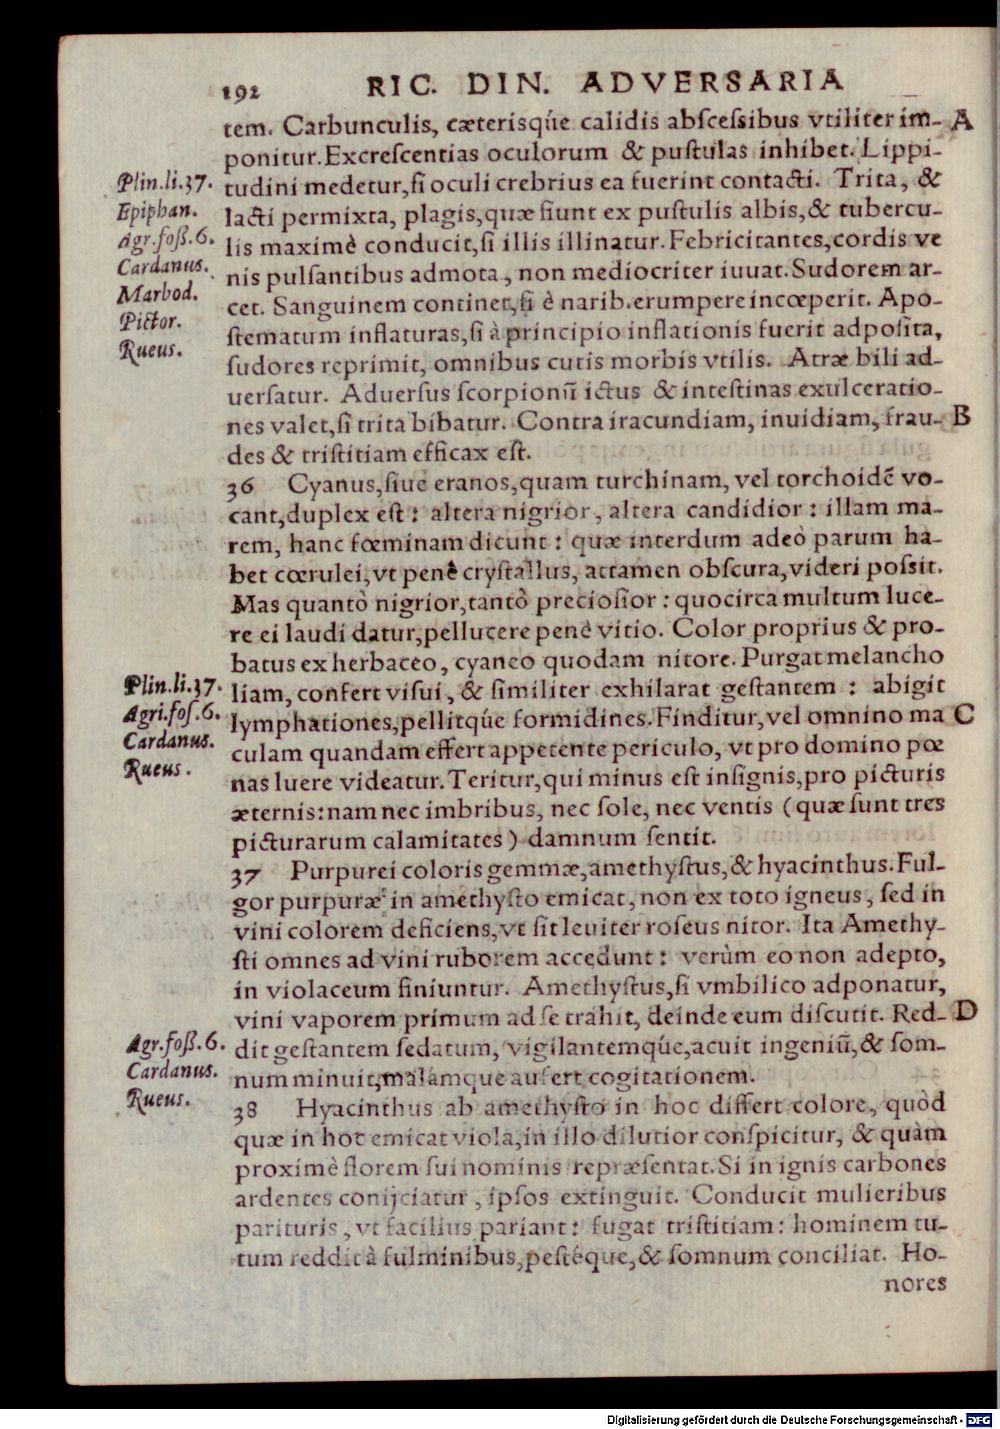 192 RIC. DIN. ADVERSARIA
tem. Carbunculis, cæterisq́ue calidis abſceſsibus vtiliter im- A
ponitur. Excreſcentias oculorum & puſtulas inhibet. Lippi-
Plin.li.37. tudini medetur, ſi oculi crebrius ea fuerint contacti. Trita, &
Epiphan. lacti permixta, plagis, quæ fiunt ex puſtulis albis, & tubercu-
Agr.foß.6. lis maximè conducit, ſi illis illinatur. Febricitantes, cordis ve
Cardanus. nis pulſantibus admota, non mediocriter iuuat. Sudorem ar-
Marbod. cet. Sanguinem continet, ſi è narib. erumpere incœperit. Apo-
Pictor. ſtematum inflaturas, ſi à principio inflationis fuerit adpoſita,
Rueus. ſudores reprimit, omnibus cutis morbis vtilis. Atræ bili ad-
uerſatur. Aduerſus ſcorpionũ ictus & inteſtinas exulceratio-
nes valet, ſi trita bibatur. Contra iracundiam, inuidiam, frau- B
des & triſtitiam efficax eſt.
36 Cyanus, ſiue eranos, quam turchinam, vel torchoidẽ vo-
cant, duplex eſt: altera nigrior, altera candidior: illam ma-
rem, hanc fœminam dicunt: quæ interdum adeò parum ha-
bet cœrulei, vt penè cryſtallus, attamen obſcura, videri poſsit.
Mas quantò nigrior, tantò precioſior: quocirca multum luce-
re ei laudi datur, pellucere penè vitio. Color proprius & pro-
batus ex herbaceo, cyaneo quodam nitore. Purgat melancho
Plin.li.37. liam, confert viſui, & ſimiliter exhilarat geſtantem: abigit
Agri.foſ.6. lymphationes, pellitq́ue formidines. Finditur, vel omnino ma C
Cardanus. culam quandam effert appetente periculo, vt pro domino pœ
Rueus. nas luere videatur. Teritur, qui minus eſt inſignis, pro picturis
æternis: nam nec imbribus, nec ſole, nec ventis (quæ ſunt tres
picturarum calamitates) damnum ſentit.
37 Purpurei coloris gemmæ, amethyſtus, & hyacinthus. Ful-
gor purpuræ in amethyſto emicat, non ex toto igneus, ſed in
vini colorem deficiens, vt ſit leuiter roſeus nitor. Ita Amethy-
ſti omnes ad vini ruborem accedunt: verùm eo non adepto,
in violaceum finiuntur. Amethyſtus, ſi vmbilico adponatur,
vini vaporem primum ad ſe trahit, deinde eum diſcutit. Red- D
Agr.foß.6. dit geſtantem ſedatum, vigilantemq́ue, acuit ingeniũ, & ſom-
Cardanus. num minuit, malamque aufert cogitationem.
Rueus. 38 Hyacinthus ab amethyſto in hoc differt colore, quòd
quæ in hoc emicat viola, in illo dilutior conſpicitur, & quàm
proximè florem ſui nominis repræſentat. Si in ignis carbones
ardentes conijciatur, ipſos extinguit. Conducit mulieribus
parituris, vt facilius pariant: fugat triſtitiam: hominem tu-
tum reddit à fulminibus, peſtéque, & ſomnum conciliat. Ho-
nores
Digitalisierung gefördert durch die Deutsche Forschungsgemeinschaft - DFG